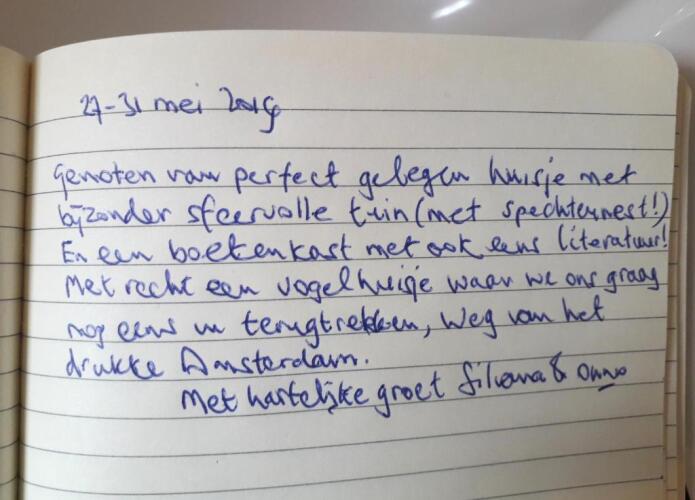 27-31 mei 2019
Genoten van perfect gelegen huisje met
bijzonder sfeervolle tuin (met spechtennest!)
En een boekenkast met ook eens literatuur!
Met recht een vogelhuisje waar we ons graag
nog eens in terugtrekken, weg van het
drukke Amsterdam.
Met hartelijke groet Silvana & Onno